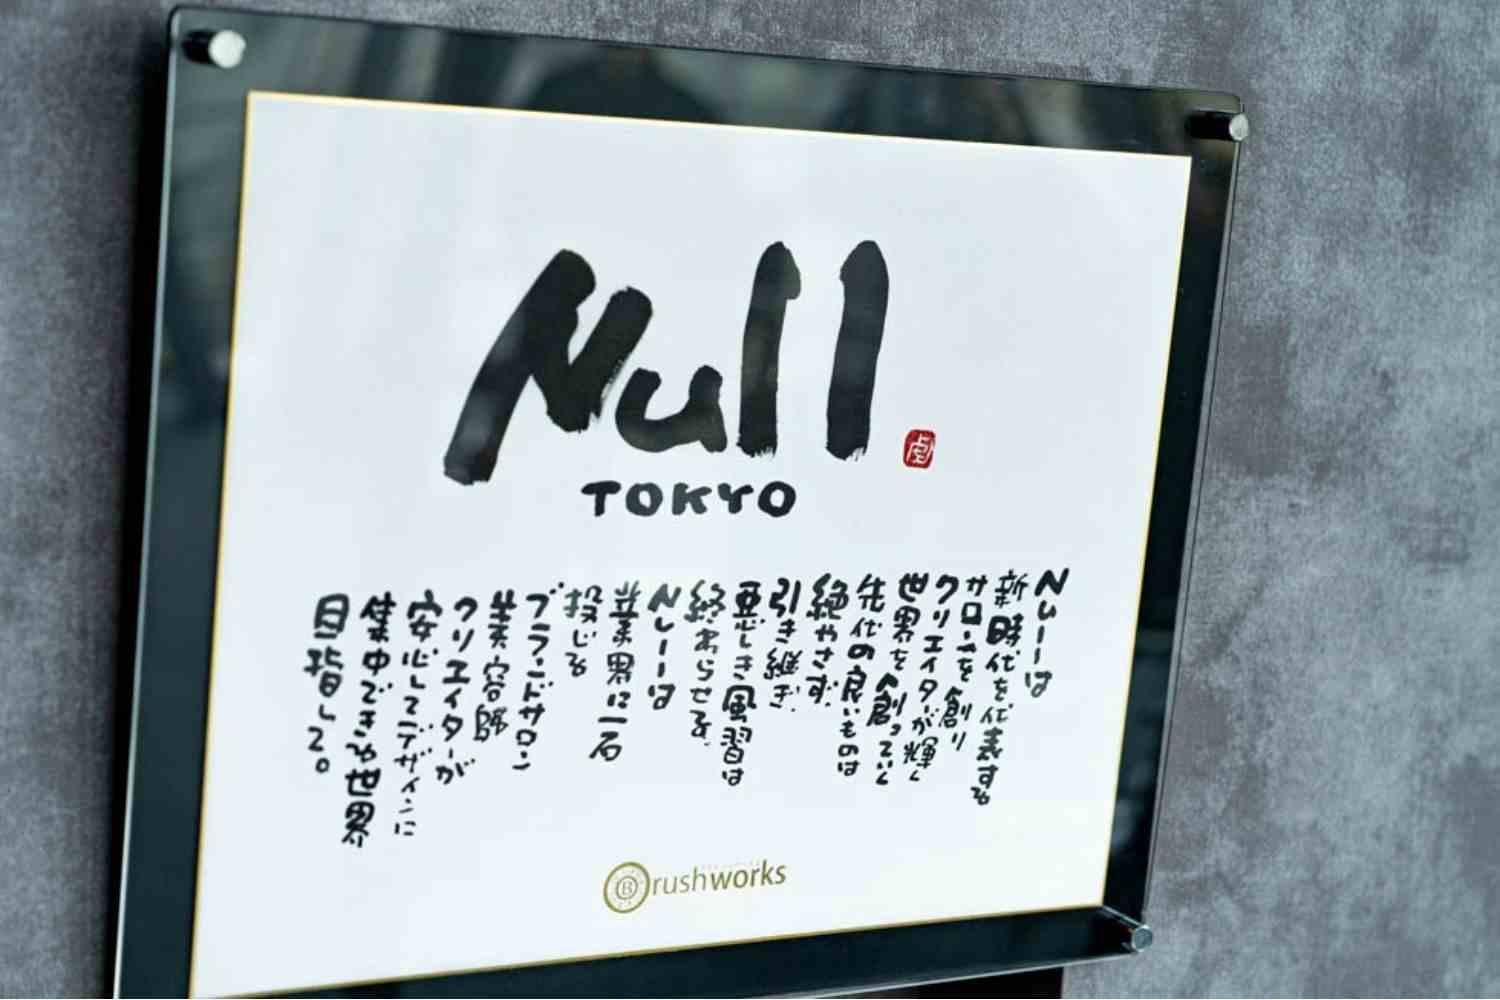 Null
TOKYO
Nullは
新時代を代表する
サロンを創り
クリエイターが輝く
世界を創っていく
先代の良いものは
絶やさず
引き継ぎ
悪しき風習は
終わらせる
Nullは
業界に一石
投じる
ブランドサロン
美容師
クリエイターが
安心してデザインに
集中できる世界
目指して。
Brushworks